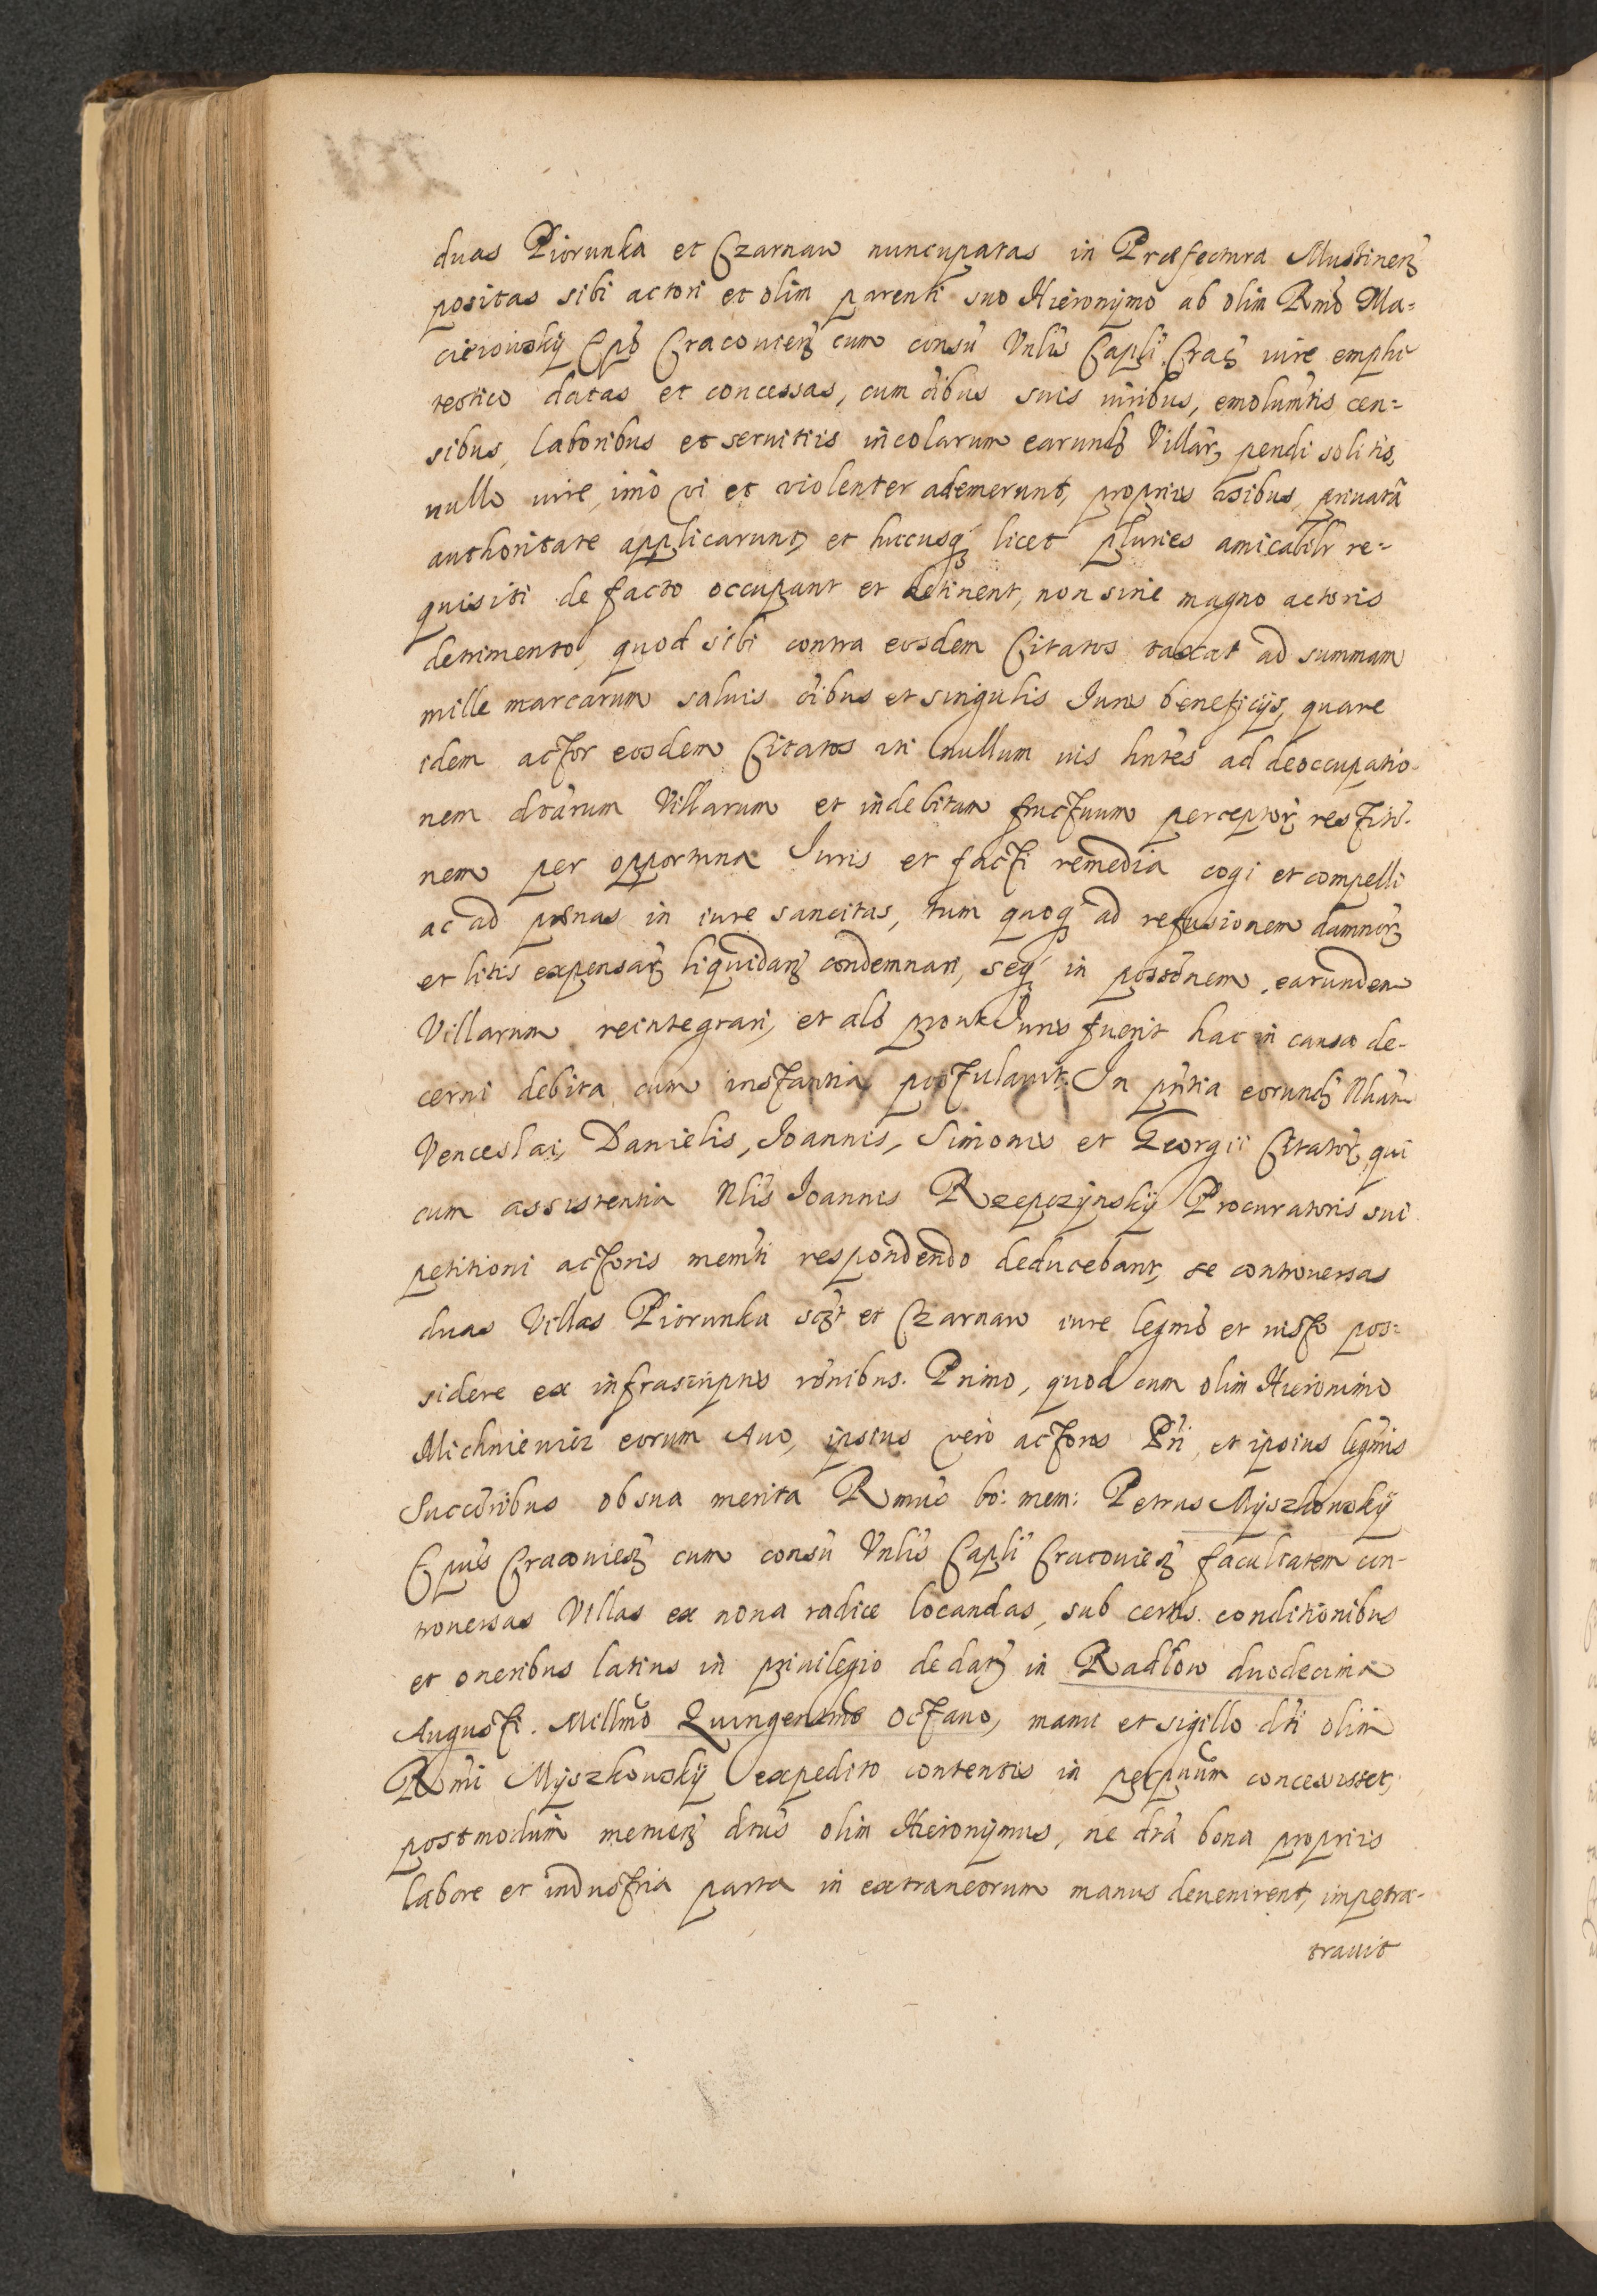 duas Piorunka et Czarnau nuncupatas in Præfectura Mustinenʒ
positas sibi actori et olim parenti suo Hieronÿmo ab olim Rmõ Ma=
cieiouskÿ Epõ Cracouienʒ cum consũ Vnlis Capli Cracʒ iure emphi
teotico datas et concessas, cum õibus suis iuribus, emolumtis cen=
sibus, laboribus et seruitiis incolarum earundʒ Villarʒ pendi solitis,
nullo iure, imò vi et violenter ademerunt, propriis usibus, priuatâ
authoritate applicarunt, et huccusqʒ licet pluries amicabilr re=
quisiti de facto occupant et detinent, non sine magno actoris
detrimento, quod sibi contra eosdem Citatos taxat ad summam
mille marcarum saluis õibus et singulis Iuris beneficijs, quare
idem actor eosdem Citatos uti nullum ius hntes ad deoccupatio
nem dtarum Villarum et indebitam fructuum perceptorʒ restitõ-
nem per opportuna Iuris et facti remedia cogi et compelli
ac ad pænas in iure sancitas, tum quoqʒ ad refusionem damnorʒ
et litis expensarʒ liquidanʒ condemnari, seqʒ in possõnem earunden
Villarum reintegrari, et als prout Iuris fuerit hac in causa de-
cerni debita cum instantia postulauit. In pñtia eorundʒ Nhum
Venceslai, Danielis, Joannis, Simonis et Georgii Citatorʒ, qui
cum assistentia Nlis Joannis Rzepczÿnskÿ Procuratoris sui
petitioni actoris memti respondendo deducebant, se controuersas
duas Villas Piorunka sczt et Czarnau iure legmo et iusto pos=
sidere ex infrascriptis rõnibus. Primo, quod cum olim Hieronimo
Michnieuicz eorum Auo, ipsius verò actoris Pri, et ipsius legmis
Succõribus ob sua merita Rmus bo: mem: Petrus Mÿszkouskÿ
Epus Cracouienʒ cum consũ Vnlis Capli Cracouienʒ facultatem con-
trouersas Villas ex noua radice locandas, sub certis conditionibus
et oneribus latius in priuilegio de datʒ in Radłow duodecima
Augusti. Millmo Quingentmo Octauo, manu et sigillo dti olim
Rmi Mÿszkouskÿ expedito contentis in perpuum concessisset,
postmodum metuenʒ dtus olim Hieronÿmus, ne dta bona propriis
labore et industria parta in extraneorum manus deuenirent, impetra-
trauit